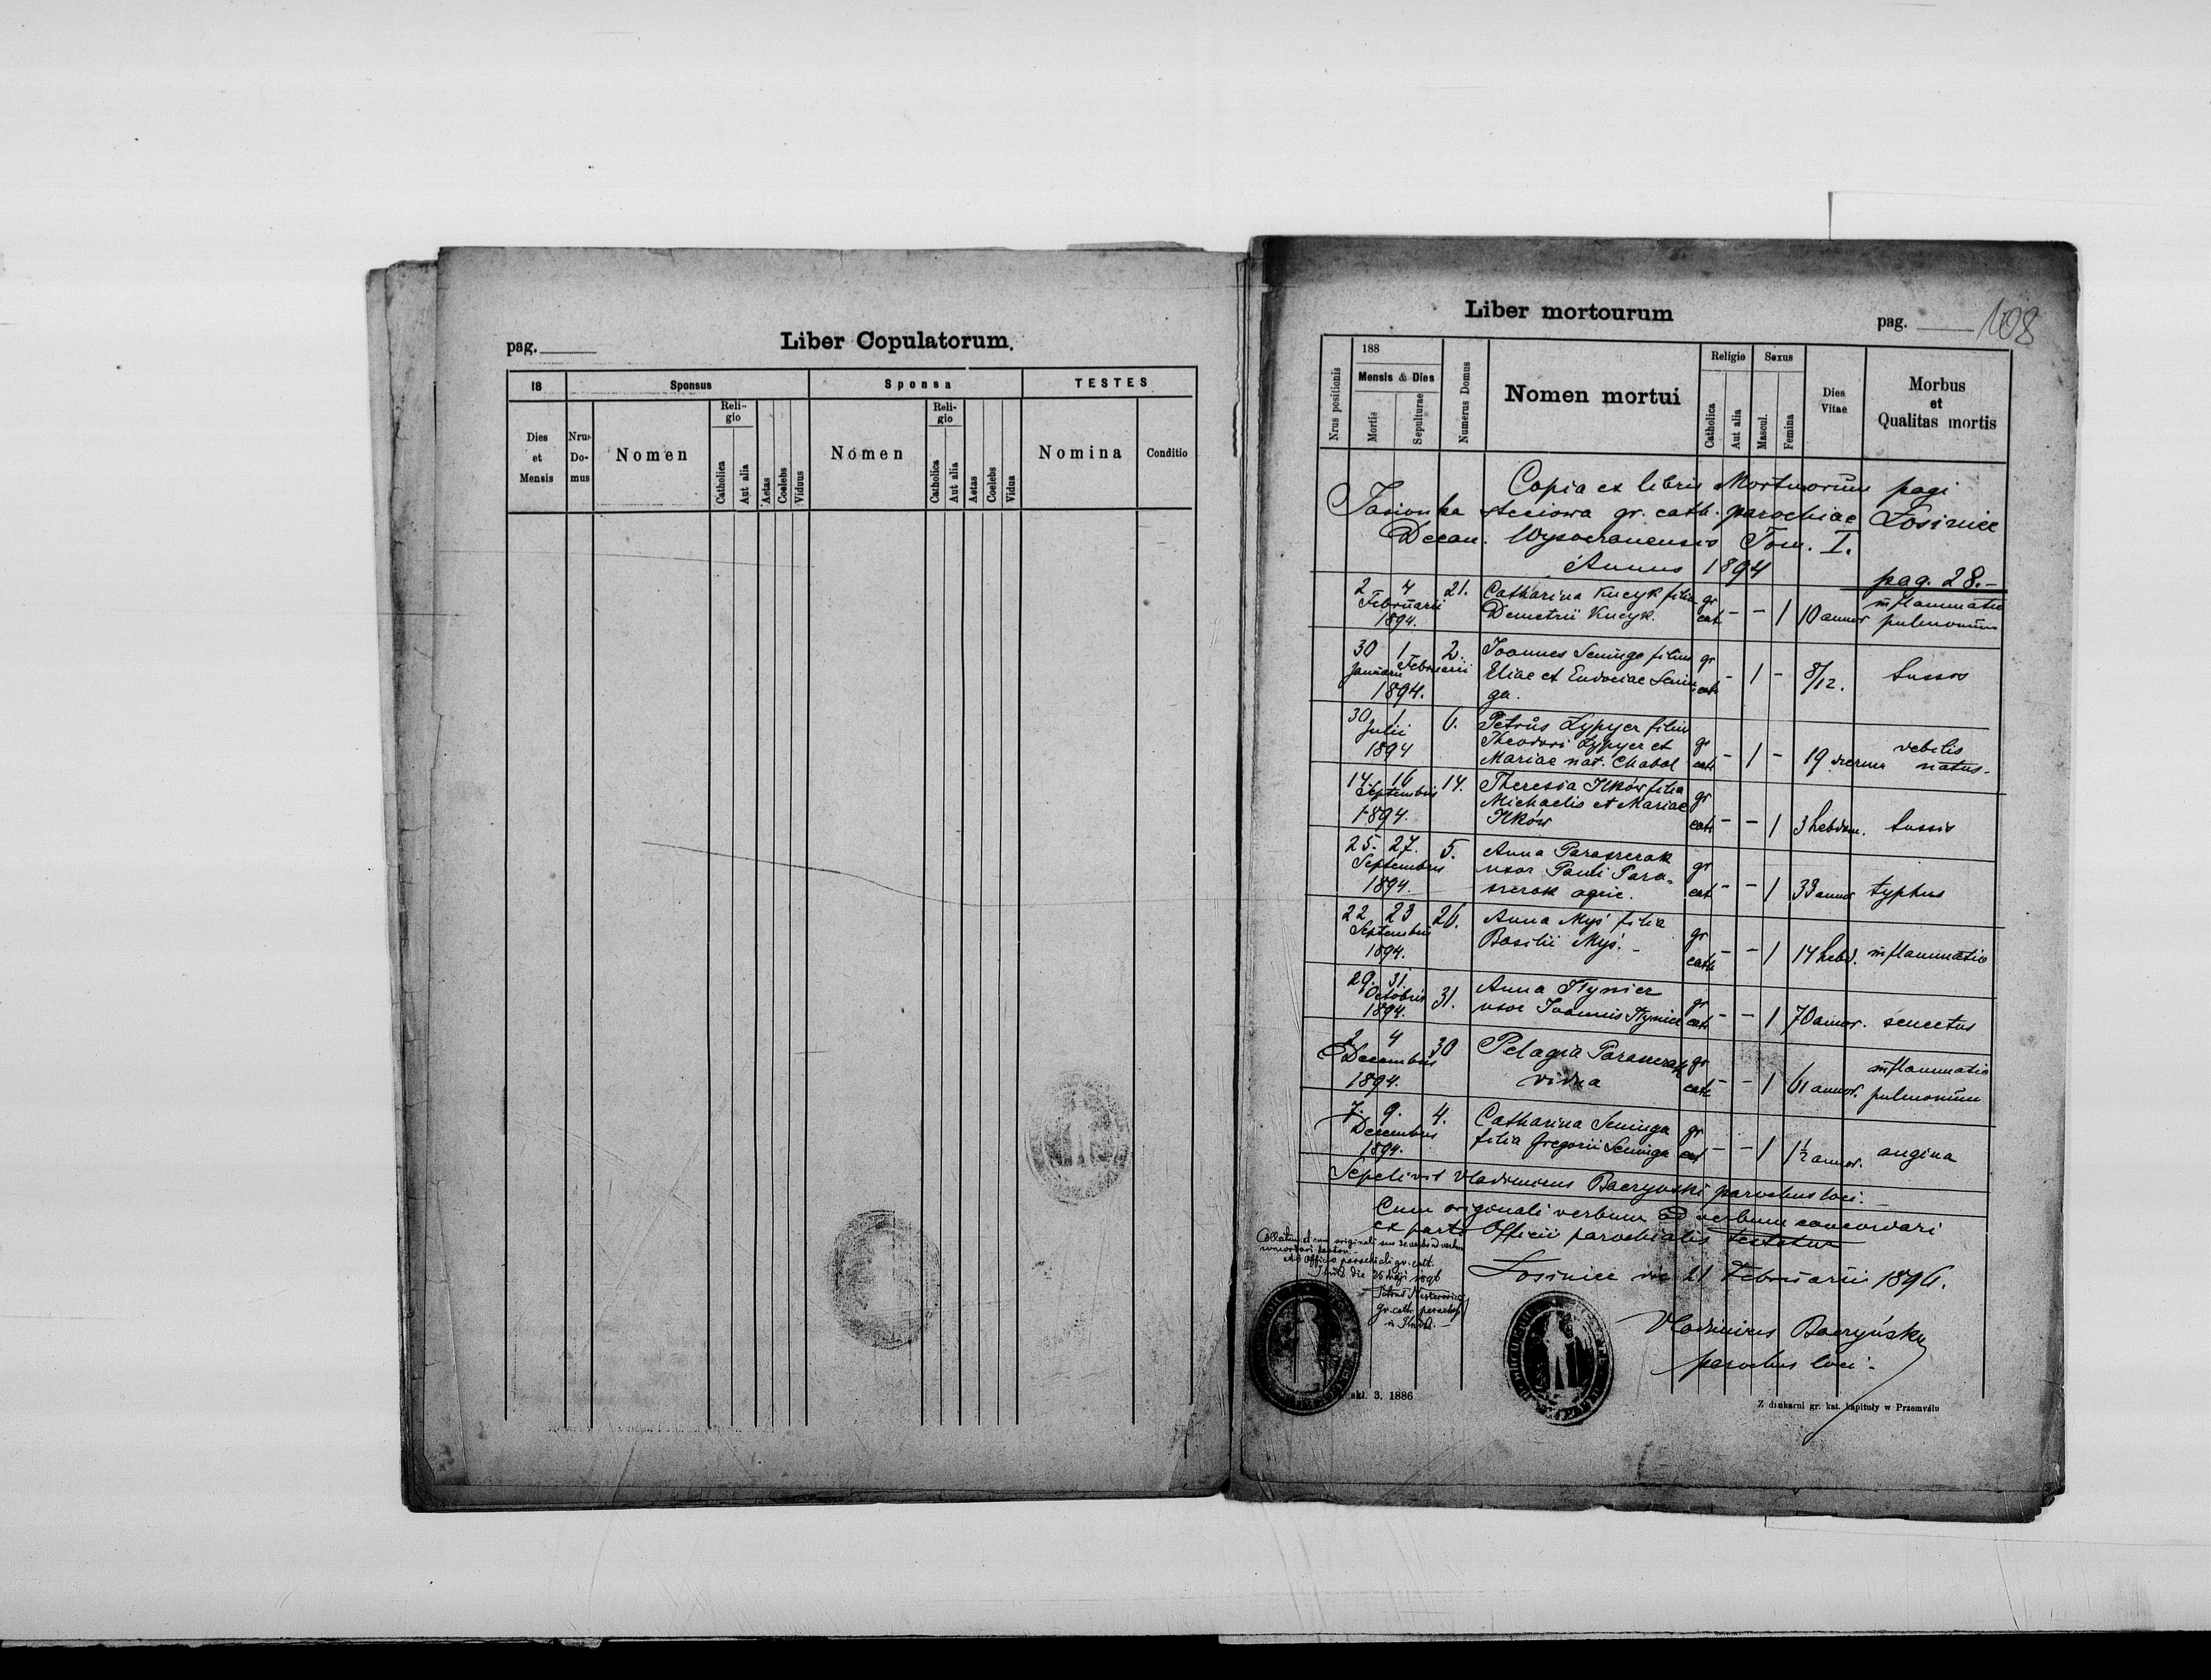 pag.
Liber Copulatorum.
18
Sponsus
Sponsa
TESTES
Dies et Mensis
Nrus Do- mus
Nomen
Reli- gio
Catholica
Aut alia
Aetas
Coelebs
Viduus
Nomen
Reli- gio
Catholica
Aut alia
Aetas
Coelebs
Vidua
Nomina
Conditio
Liber mortourum
pag. 108
Nrus positionis
188
Mensis & Dies
Mortis
Sepulturae
Numerus Domus
Nomen mortui
Religio
Catholica
Aut alia
Sexus
Mascul.
Femina
Dies Vitae
Morbus et Qualitas mortis
Copia ex libris Mortuorum pagi
Jasionka gr. cath. parochiae Łosiniec
Decan. Tom. I.
Annus 1894 pag. 28.-
2 4 21. Catharina Kucyk filia gr inflammatio
Februarii Demetrii Kucyk. cat - - 1 10 annor pulmonum
1894.
30 1 2. Joannes Seninga filius gr
Januarii Februarii Eliae et Eudociae Senin cath - 1 - 8/12. tussis
1894. ga.
30 1 6. Petrus Lypyer filius
Julii Theodori Lypyer et gr debilis
1894 Mariae nat. Chabal cath - 1 - 19 natus-
14 16 14. Theresia Ilków filia
Septembris Michaelis et Mariae gr
1894. Ilków cath - - 1 3 hebdom. tussis
25. 27. 5. Anna Paraszczak
Septembris uxor Pauli Para- gr
1894. szczak agric. cat - - 1 33 annor typhus
22 23 26. Anna Myś filia
Septembris Basilii Myś. - gr
1894. cath - - 1 14 hebd. inflammatio
29. 31. 31. Anna
Octobris uxor Joannis gr
1894. cath - - 1 70 annor. senectus
2 4 30 Pelagia Paraszczak gr inflammatio
Decembris vidua cath - - 1 61 annor. pulmonum
1894.
7. 9. 4. Catharina Seninga gr
Decembris filia Gregorii Seninga cat - - 1 1½ annor. angina
1894.
Sepelivit Vladimirus Baczyński parochus loci. -
Cum originali verbum ad verbum concordari
ex parte Officii parochialis testatur
Collatum et cum originali suo de verbo ad verbum
concordari
Ab Officio parochiali gr. cath.
die 26 Maji 1896
Petrus
gr. cath. parochus
Łosiniec die 21 Februarii 1896.
Vladimirus Baczyński
parochus loci.
3. 1886
Z drukarni gr. kat. kapituły w Przemyślu